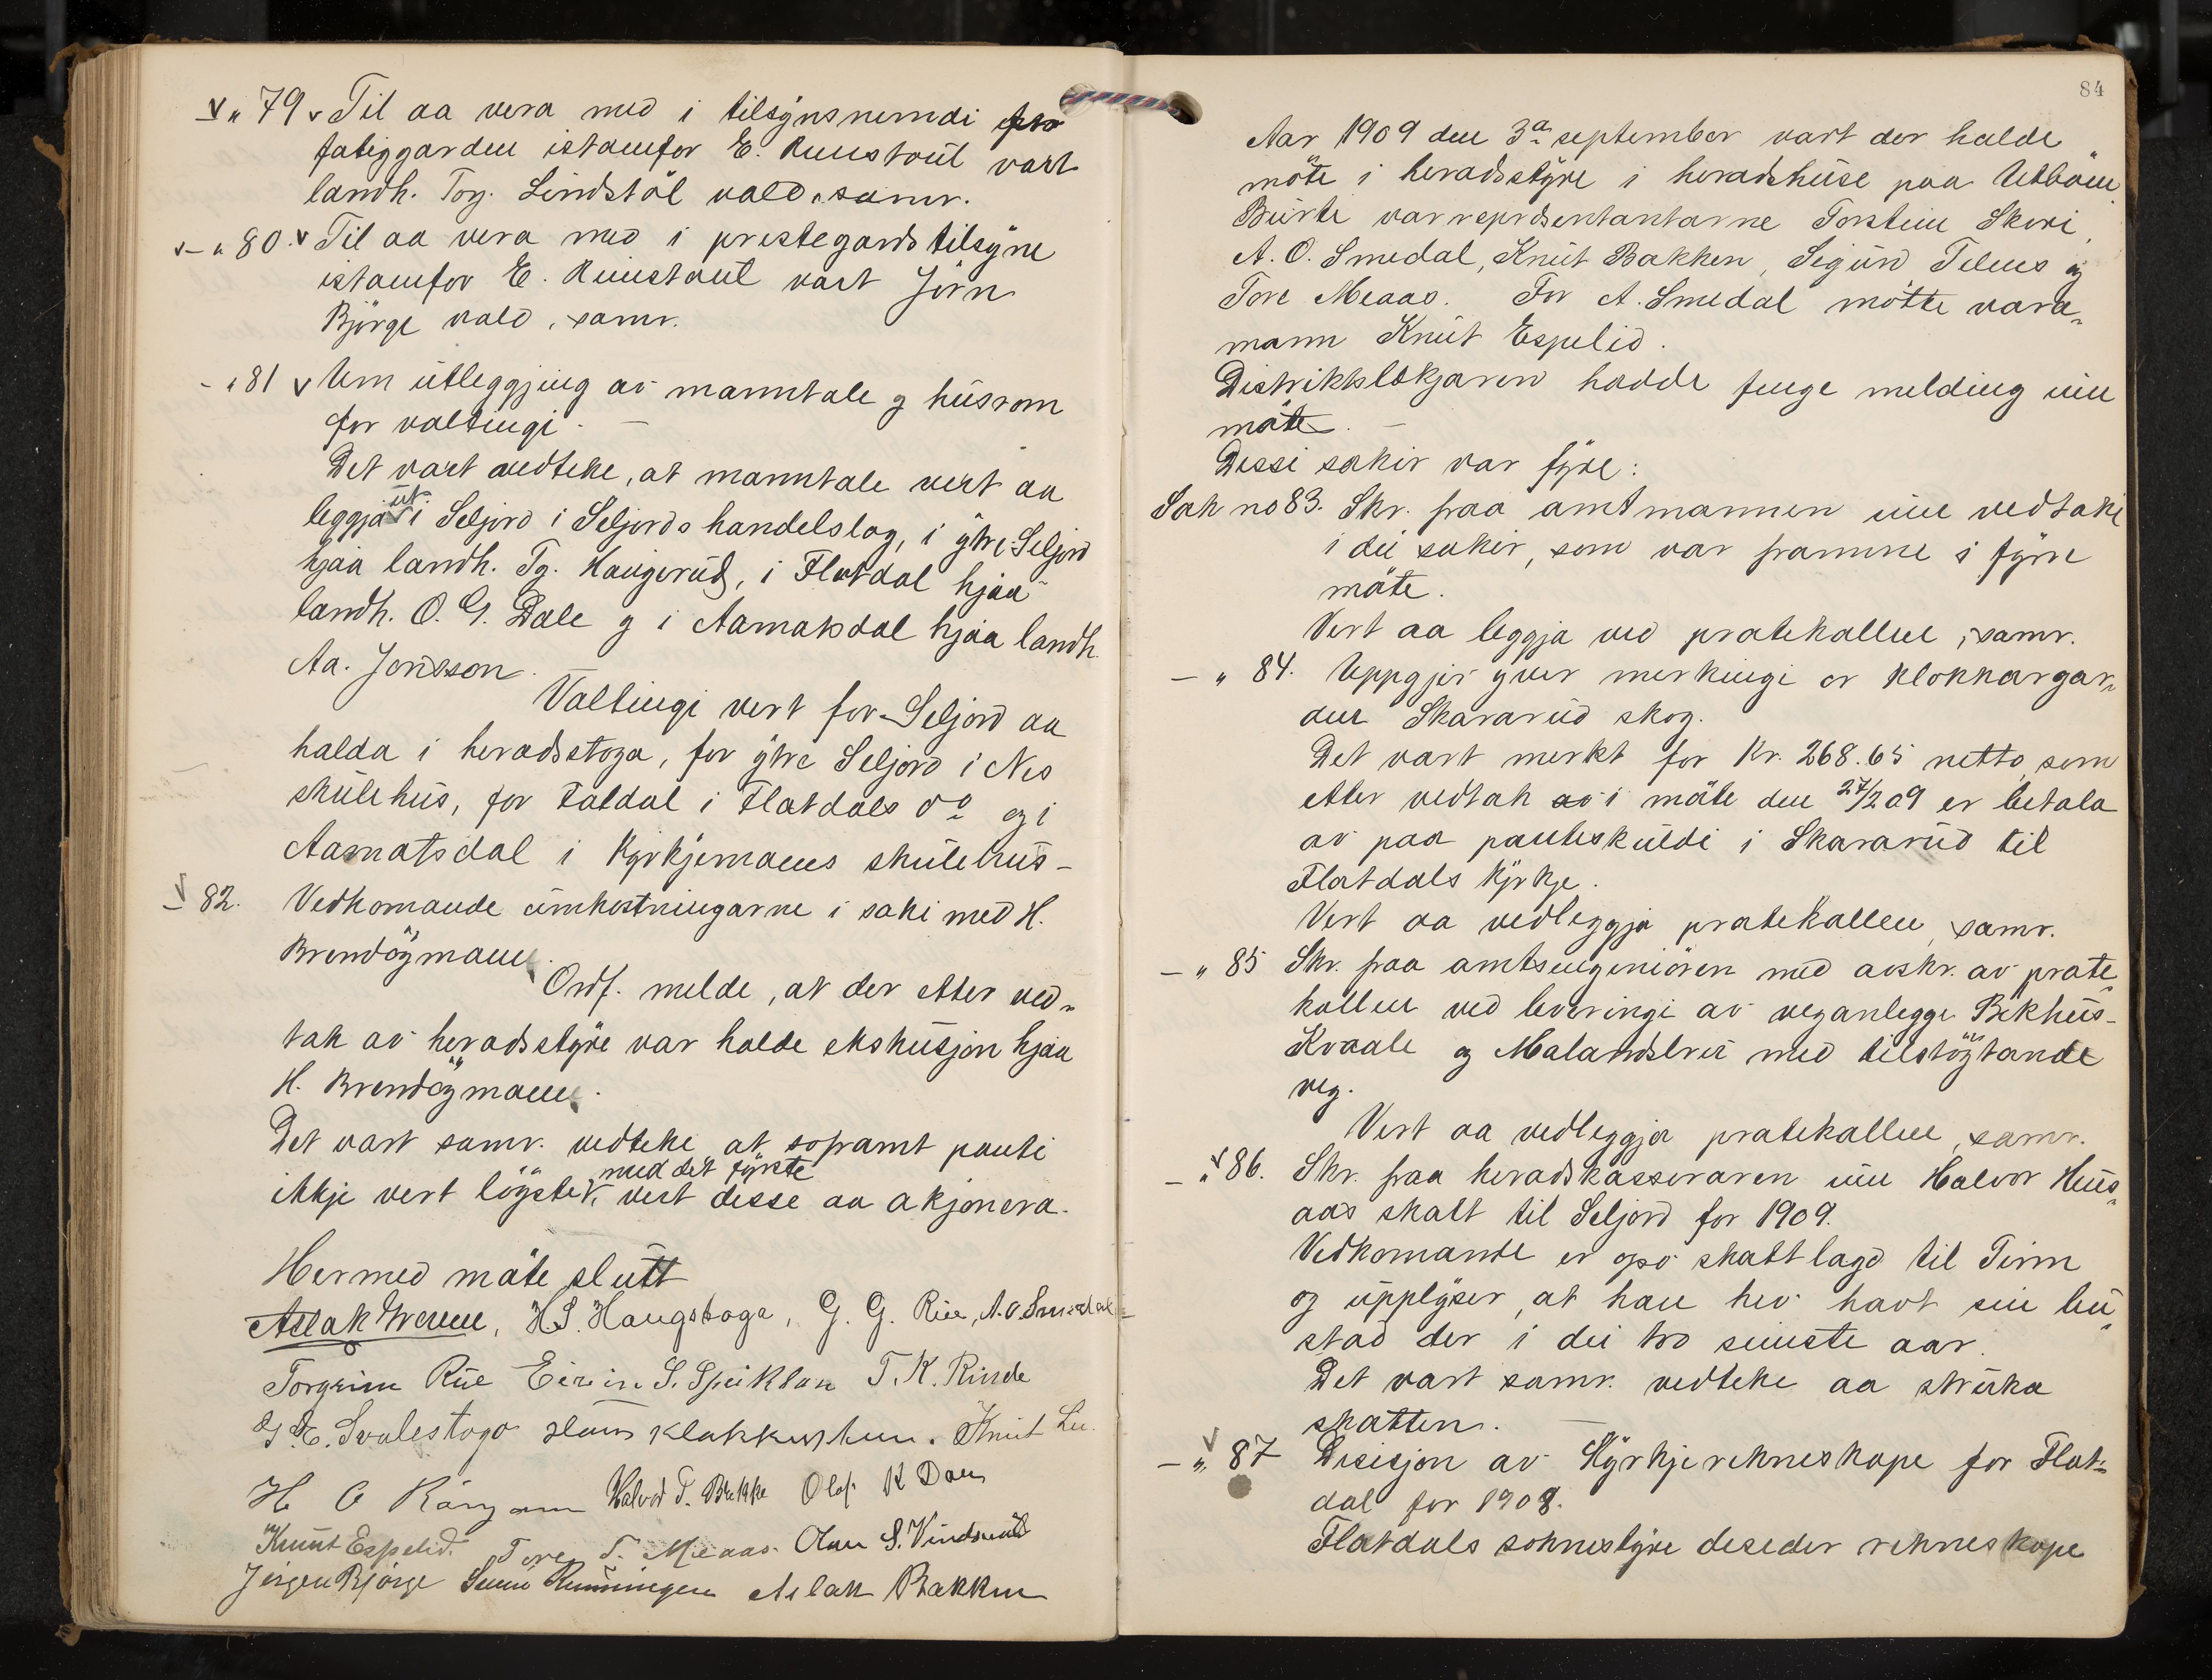 " 79 Til aa vera med i tilsynsnemdi
fatiggarden istaufor E. Runstaul vart
landh. Torg. Lindstöl vald, samr.
- " 80. Til aa vera med i prestegardstilsyne
istaufor E. Runstaul vart Jörn
Björge vald, samr.
- " 81 Um utleggjing av manntale og husrom
for valtingi. -
Det vart vedteke, at manntale vert aa
leggja ut i Seljord i Seljords handelslag, i ytre Seljord
hjaa landh. Tg. Haugerud, i Flatdal hjaa
landh. O. G. Dale og i Aamotsdal hjaa landh.
Aa. Jonsson.
Valtingi vert for Seljord aa
halda i heradsstoga, for ytre Seljord i Nes
skulehus, for Faldal i Flatdals do og i
Aamotsdal i Kyrkjemoens skulehus -
- 82. Vedkomande umkostningarne i saki med H.
Brendöymoen.
Ordf. melde, at der etter ved-
tak av heradsstyre var halde ekskusjon hjaa
H. Brendöymoen.
Det vart samr. vedteke at soframt panti
ikkje vert löyste med det fyrste, vert desse aa akjonera.
Hermed möte slutt
Aslak, H. S. Haugstoga, G. G. Rue, A. O. Smedal
Torgrim Rue Eivin S. Speiklan T. K. Rinde
G. E. Svalestogo Knut
H O Halvor T. Bekke Olaf K Dau
Knut Espelid. Tore T. Meaas. Olav S. Vindsval
Jörgen Björge Aslak Bakken
84
Aar 1909 den 3a september vart der halde
möte i heradsstyre i heradshuse paa Utböen.
Burte var reprdsentantarne Torstein Skori,
A. O. Smedal, Knut Bakken, Sigurd Telnes og
Tore Meaas. For A. Smedal mötte vara-
mann Knut Espelid.
Distriktslækjaren hadde fenge melding um
möte. -
Dessi sakir var fyre:
Sak no 83. Skr. fraa amtmannen um vedtaki
i dei sakir, som var framme i fyrre
möte.
Vert aa leggja ved protekollen, samr.
- " 84. Uppgjer yver merkingi or klokkargar-
den Skararud skog.
Det vart merkt for Kr. 268.65 netto, som
etter vedtak av i möte den 27/2 09 er betala
av paa panteskuldi i Skararud til
Flatdals kyrkje.
Vert aa vedleggja protekollen, samr.
- " 85 Skr. fraa amtsingeniören med avskr. av prote-
kollen ved leveringi av veganlegge Bekhus-
Kvaale og Malandsbru med tilstöytande
veg.
Vert aa vedleggja protekollen, samr.
- " 86. Skr. fraa heradskasseraren um Halvor Hus-
aas skatt til Seljord for 1909.
Vedkomande er opso skattlagd til Tinn
og upplyser, at han hev havt sin bu-
stad der i dei tvo seinste aar.
Det vart samr. vedteke aa struka
skatten. -
- " 87 Desisjon av Kyrkjerekneskape for Flat-
dal for 1908.
Flatdals soknestyre deseder rekneskape